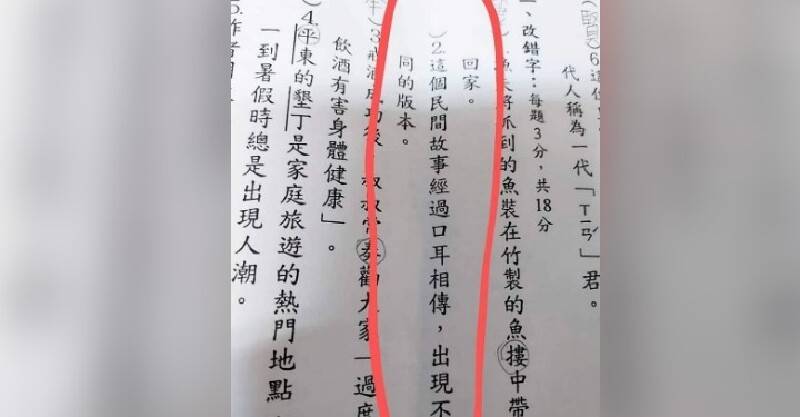 6.這
代人稱為一代「ㄒㄧㄢˊ」君。
一、改錯字：每題3分，共18分
漁夫將抓到的魚裝在竹製的魚摟中帶
回家。
2.這個民間故事經過口耳相傳，出現不
同的版本。
3.戒酒成功後，叔叔常奏勸大家「過度
飲酒有害身體健康」。
4.平東的墾丁是家庭旅遊的熱門地點，
一到暑假時總是出現人潮。
5.作者